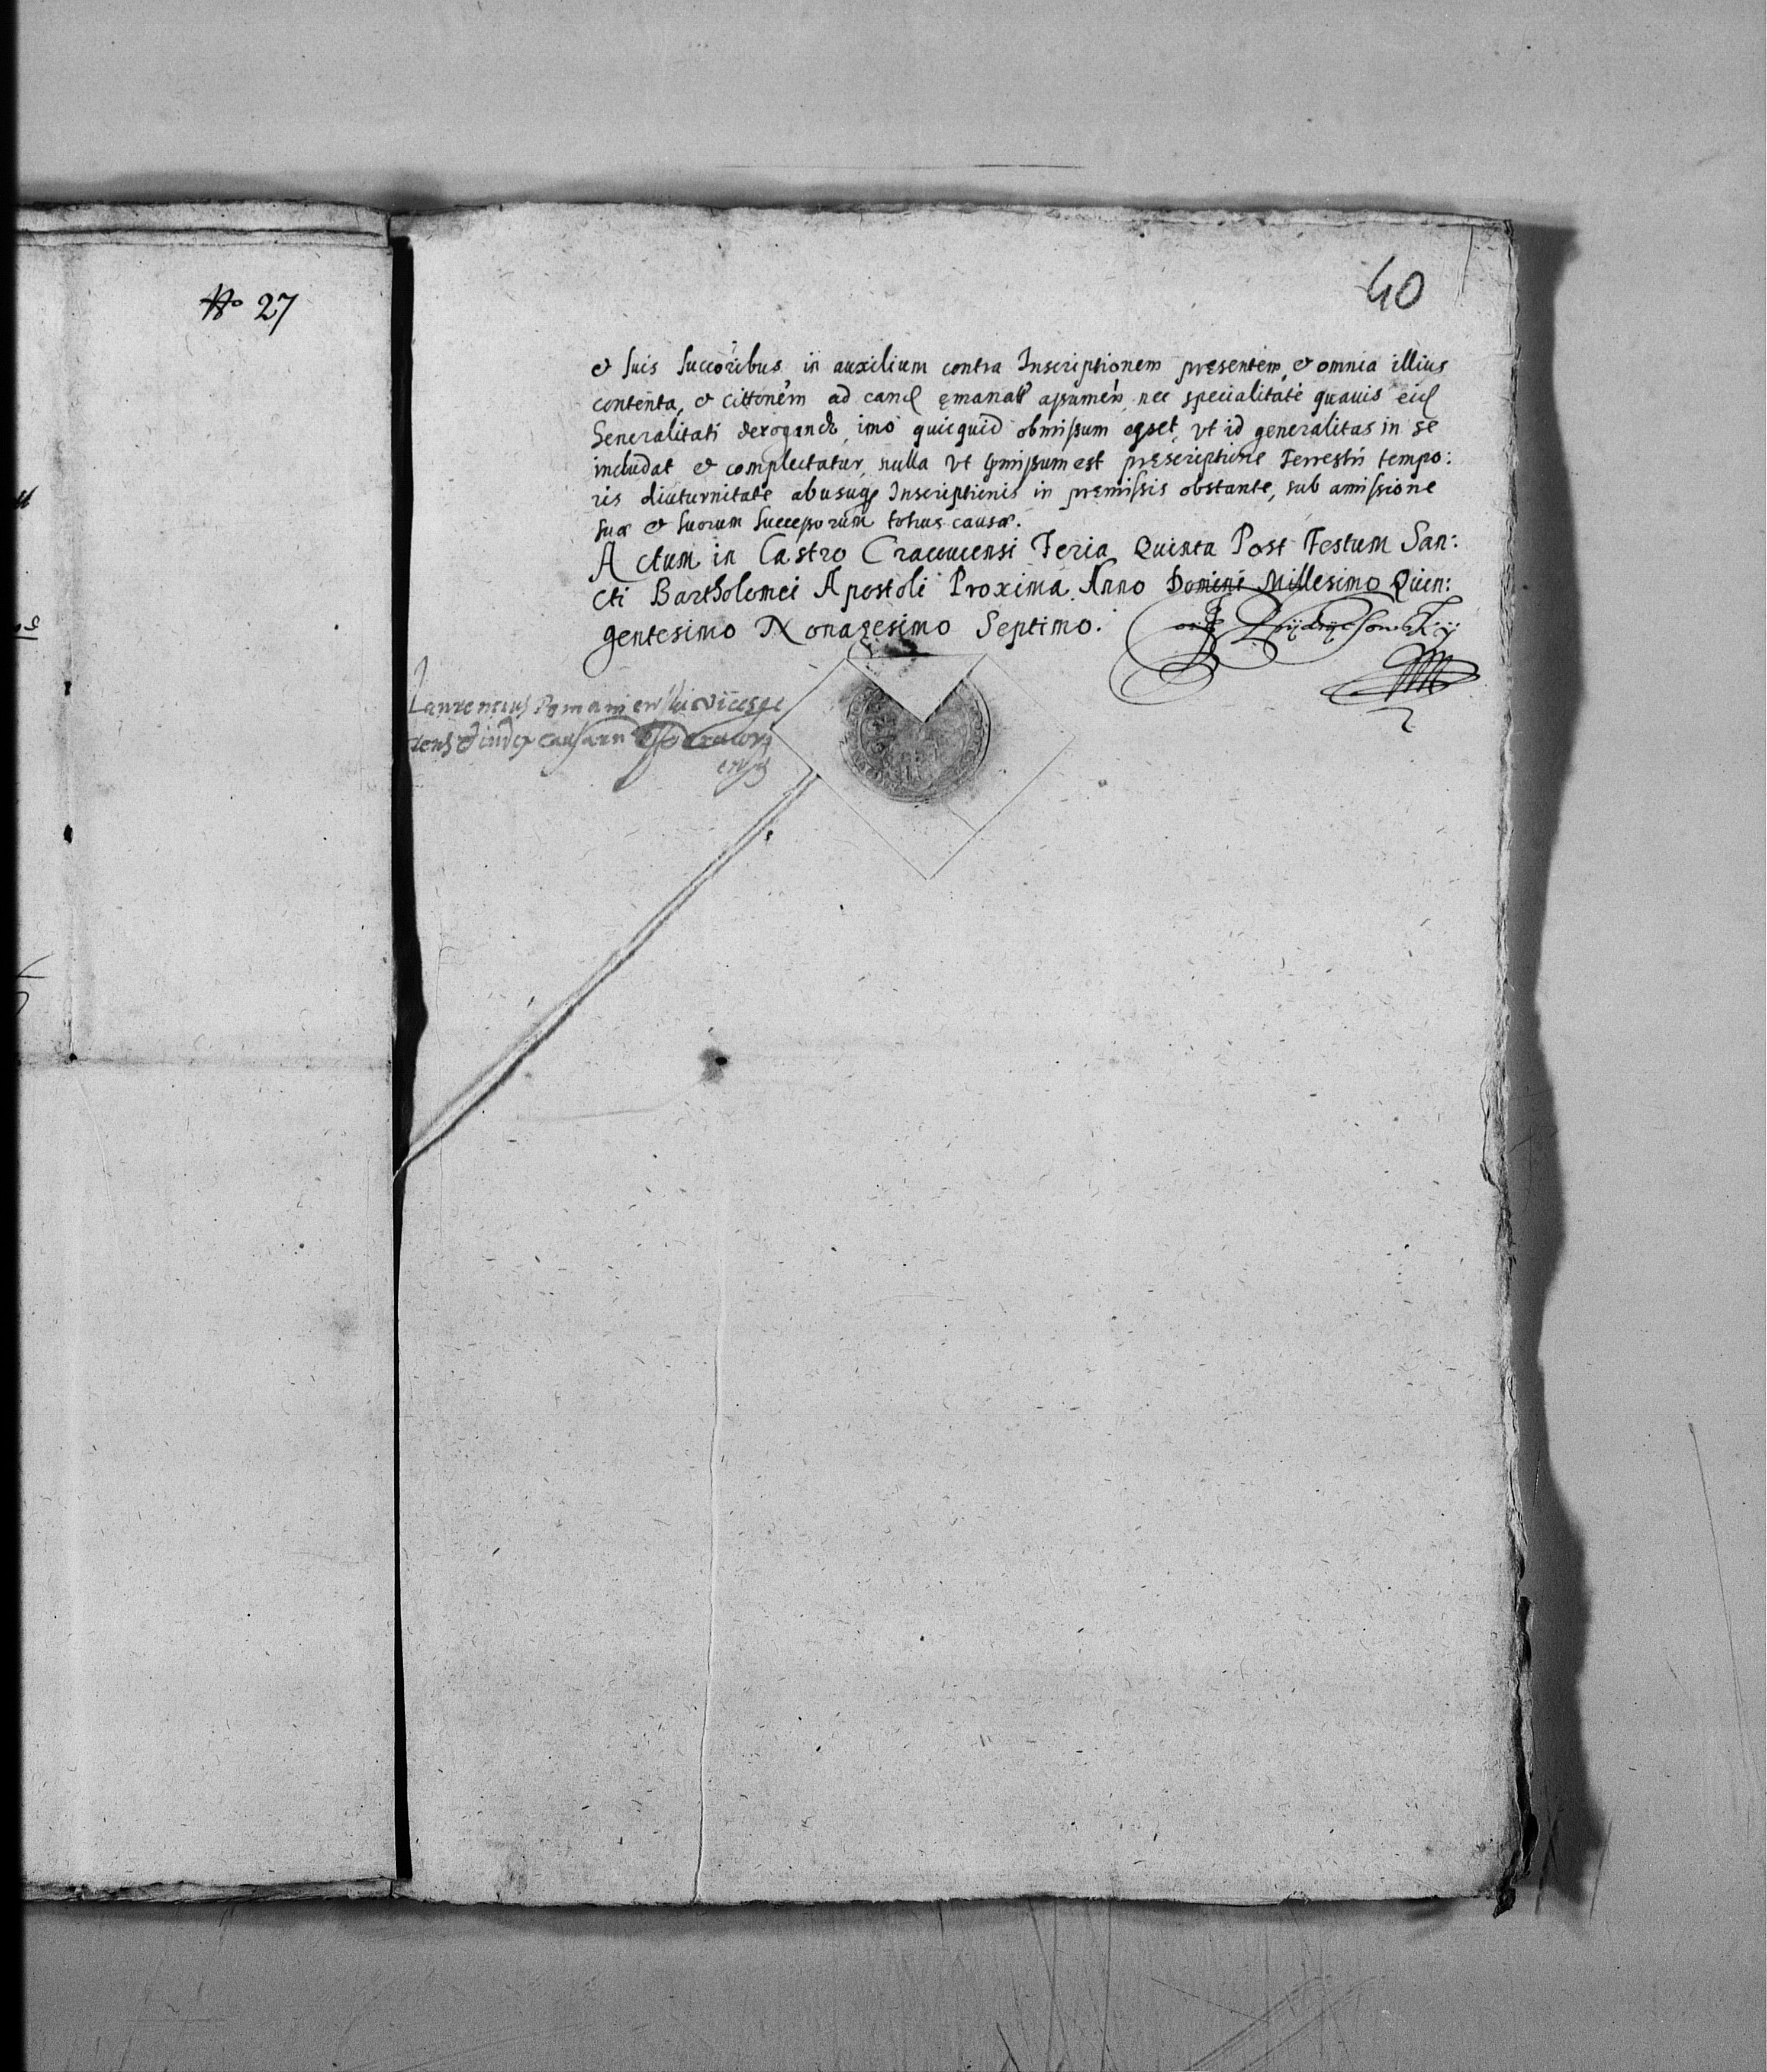 No 27
40
& suis succoribus in auxilium contra Inscriptionem pręsentem, & omnia illius
contenta, & cittonem ad eand ęmanat assumen, nec specialitate quauis eid
Generalitati derogando, imo quicquid obmissum esset, vt id generalitas in se
includat & complectatur, nulla vt pmissum est pręscriptione Terrestri tempo:
ris diuturnitate abusuq Inscriptionis in pręmissis obstante, sub amissione
suæ & suorum successorum totius causæ.
Actum in Castro Cracouiensi Feria Quinta Post Festum San:
cti Bartholomei Apostoli Proxima. Anno Domini Millesimo Quin:
gentesimo Nonagesimo Septimo.
Laurentius Romaniewski vicesge
rens & iudex causarum